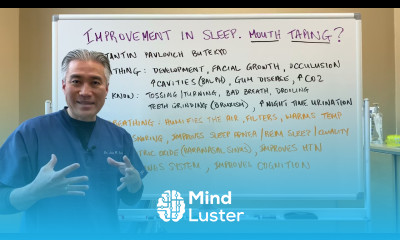 IMPROVEMENT IN SLEEP. MOUTH TAPING?
PAVLOVICH BUTEYKO
: DEVELOPMENT, FACIAL GROWTH, OCCLUSION
↑CAVITIES (BALPH), GUM DISEASE, ↑ CO2
KNOW: TOSSING/TURNING, BAD BREATH, DROOLING
TEETH GRINDING (BRUXISM), ↑ NIGHT TIME URINATION
BREATHING: HUMIDIFIES THE AIR, FILTERS, WARMS TEMP
SNORING, IMPROVES SLEEP APNEA/REM SLEEP/QUALITY
OXIDE (PARANASAL SINUS), IMPROVES HTN
SYSTEM, IMPROVES COGNITION
Mind
Luster